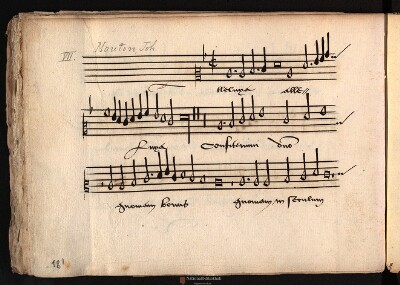 VII. Mouton Joh
Alleluya alle
luya Confitemini dno
Quoniam bonus Quoniam in seculum
18